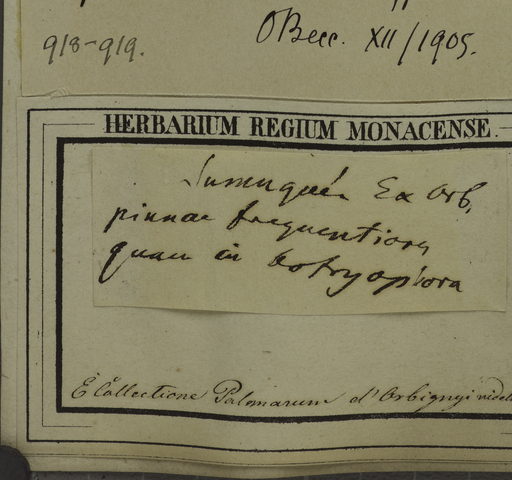 918-919.
OBecc. XII/1905.
HERBARIUM REGIUM MONACENSE
Sumuqué Ex Orb.
pinnae frequentiores
quam in botryophora
E Collectione Palmarum d'Orbignyi